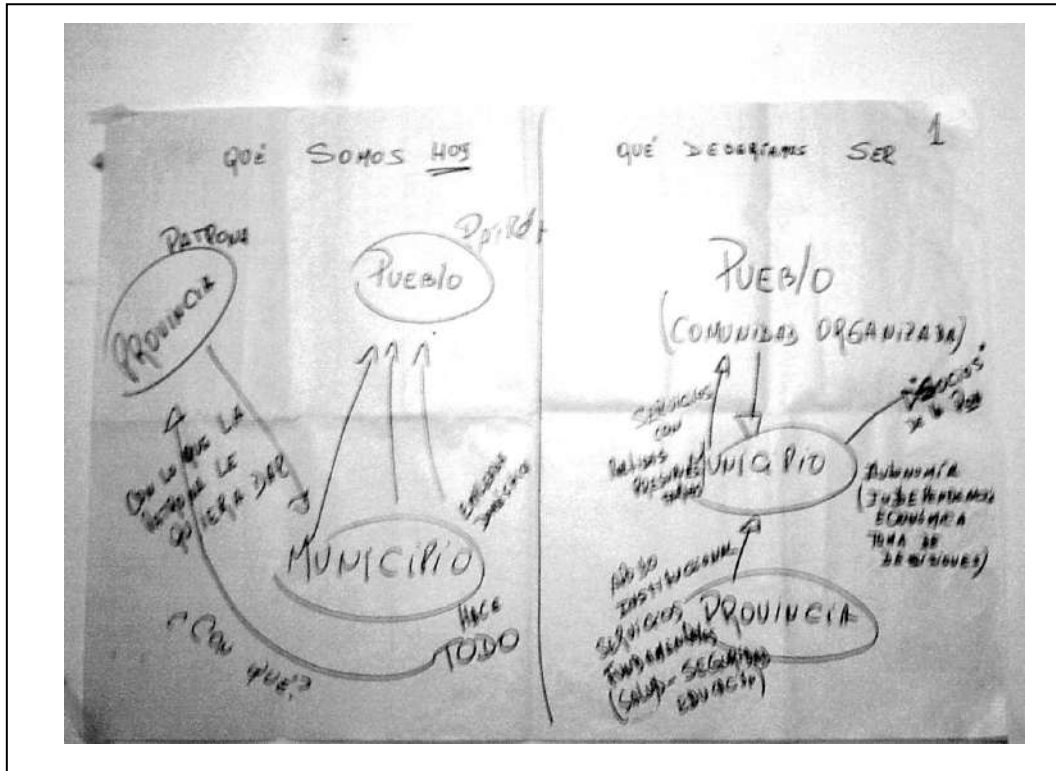 QUÉ SOMOS HOY
PATRONA
PROVINCIA
PUEBLO
CON LO QUE LA
PATRONA LE
QUIERA DAR
EMPLEADA
DOMÉSTICA
MUNICIPIO
HACE
TODO
¿CON QUÉ?
1
QUÉ DEBERÍAMOS SER
PUEBLO
(COMUNIDAD ORGANIZADA)
SERVICIOS
CON
PARTIDAS
"SOCIOS"
DE LA
MUNICIPIO
AUTONOMÍA
(INDEPENDENCIA
ECONÓMICA
TOMA DE
DECISIONES)
APOYO
INSTITUCIONAL
SERVICIOS
FUNDAMENTALES
(SALUD - SEGURIDAD
EDUCACIÓN)
PROVINCIA